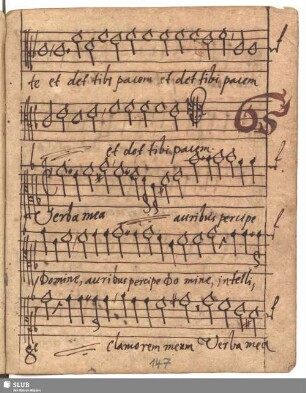 te et det tibi pacem et det tibi pacem
et det tibi pacem
65
Verba mea auribus percipe
Domine, auribus percipe Do mine, intelli,
ge clamorem meum Verba mea
147
SLUB